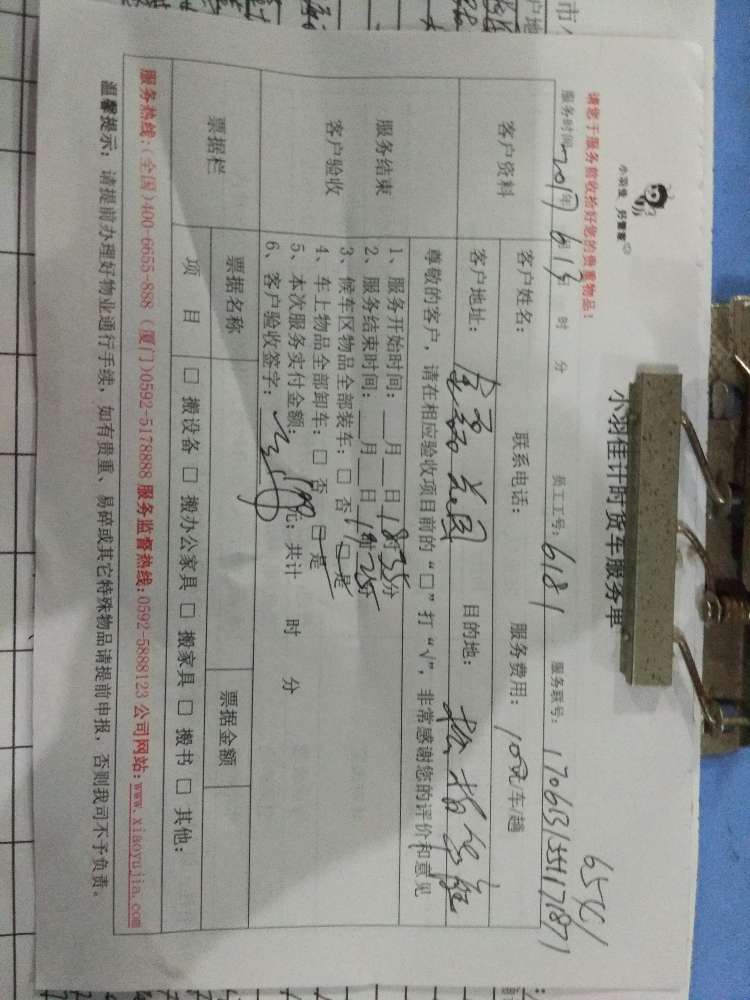 小羽佳 好管家
小羽佳计时货车服务单
请您于服务前收拾好您的贵重物品!
服务时间 2017年6月13日 时 分 员工工号: 6181 服务联号:
客户资料
客户姓名: 联系电话: 服务费用: 100元/车/趟
客户地址: 花园 目的地:
服务结束
客户验收
尊敬的客户,请在相应验收项目前的“□”打“√”,非常感谢您的评价和意见
1、服务开始时间:__月__日18时35分
2、服务结束时间:__月__日19时25分
3、候车区物品全部装车:□ 否 □ 是
4、车上物品全部卸车:□ 否 □ 是
5、本次服务实付金额: 100元;共计 时 分
6、客户验收签字:
票据栏
票据名称 票据金额
项 目 □ 搬设备 □ 搬办公家具 □ 搬家具 □ 搬书 □ 其他:
服务热线:(全国)400-6655-888 (厦门)0592-5178888 服务监督热线:0592-5888123 公司网站:www.xiaoyujia.com
温馨提示: 请提前办理好物业通行手续,如有贵重、易碎或其它特殊物品请提前申报,否则我司不予负责。